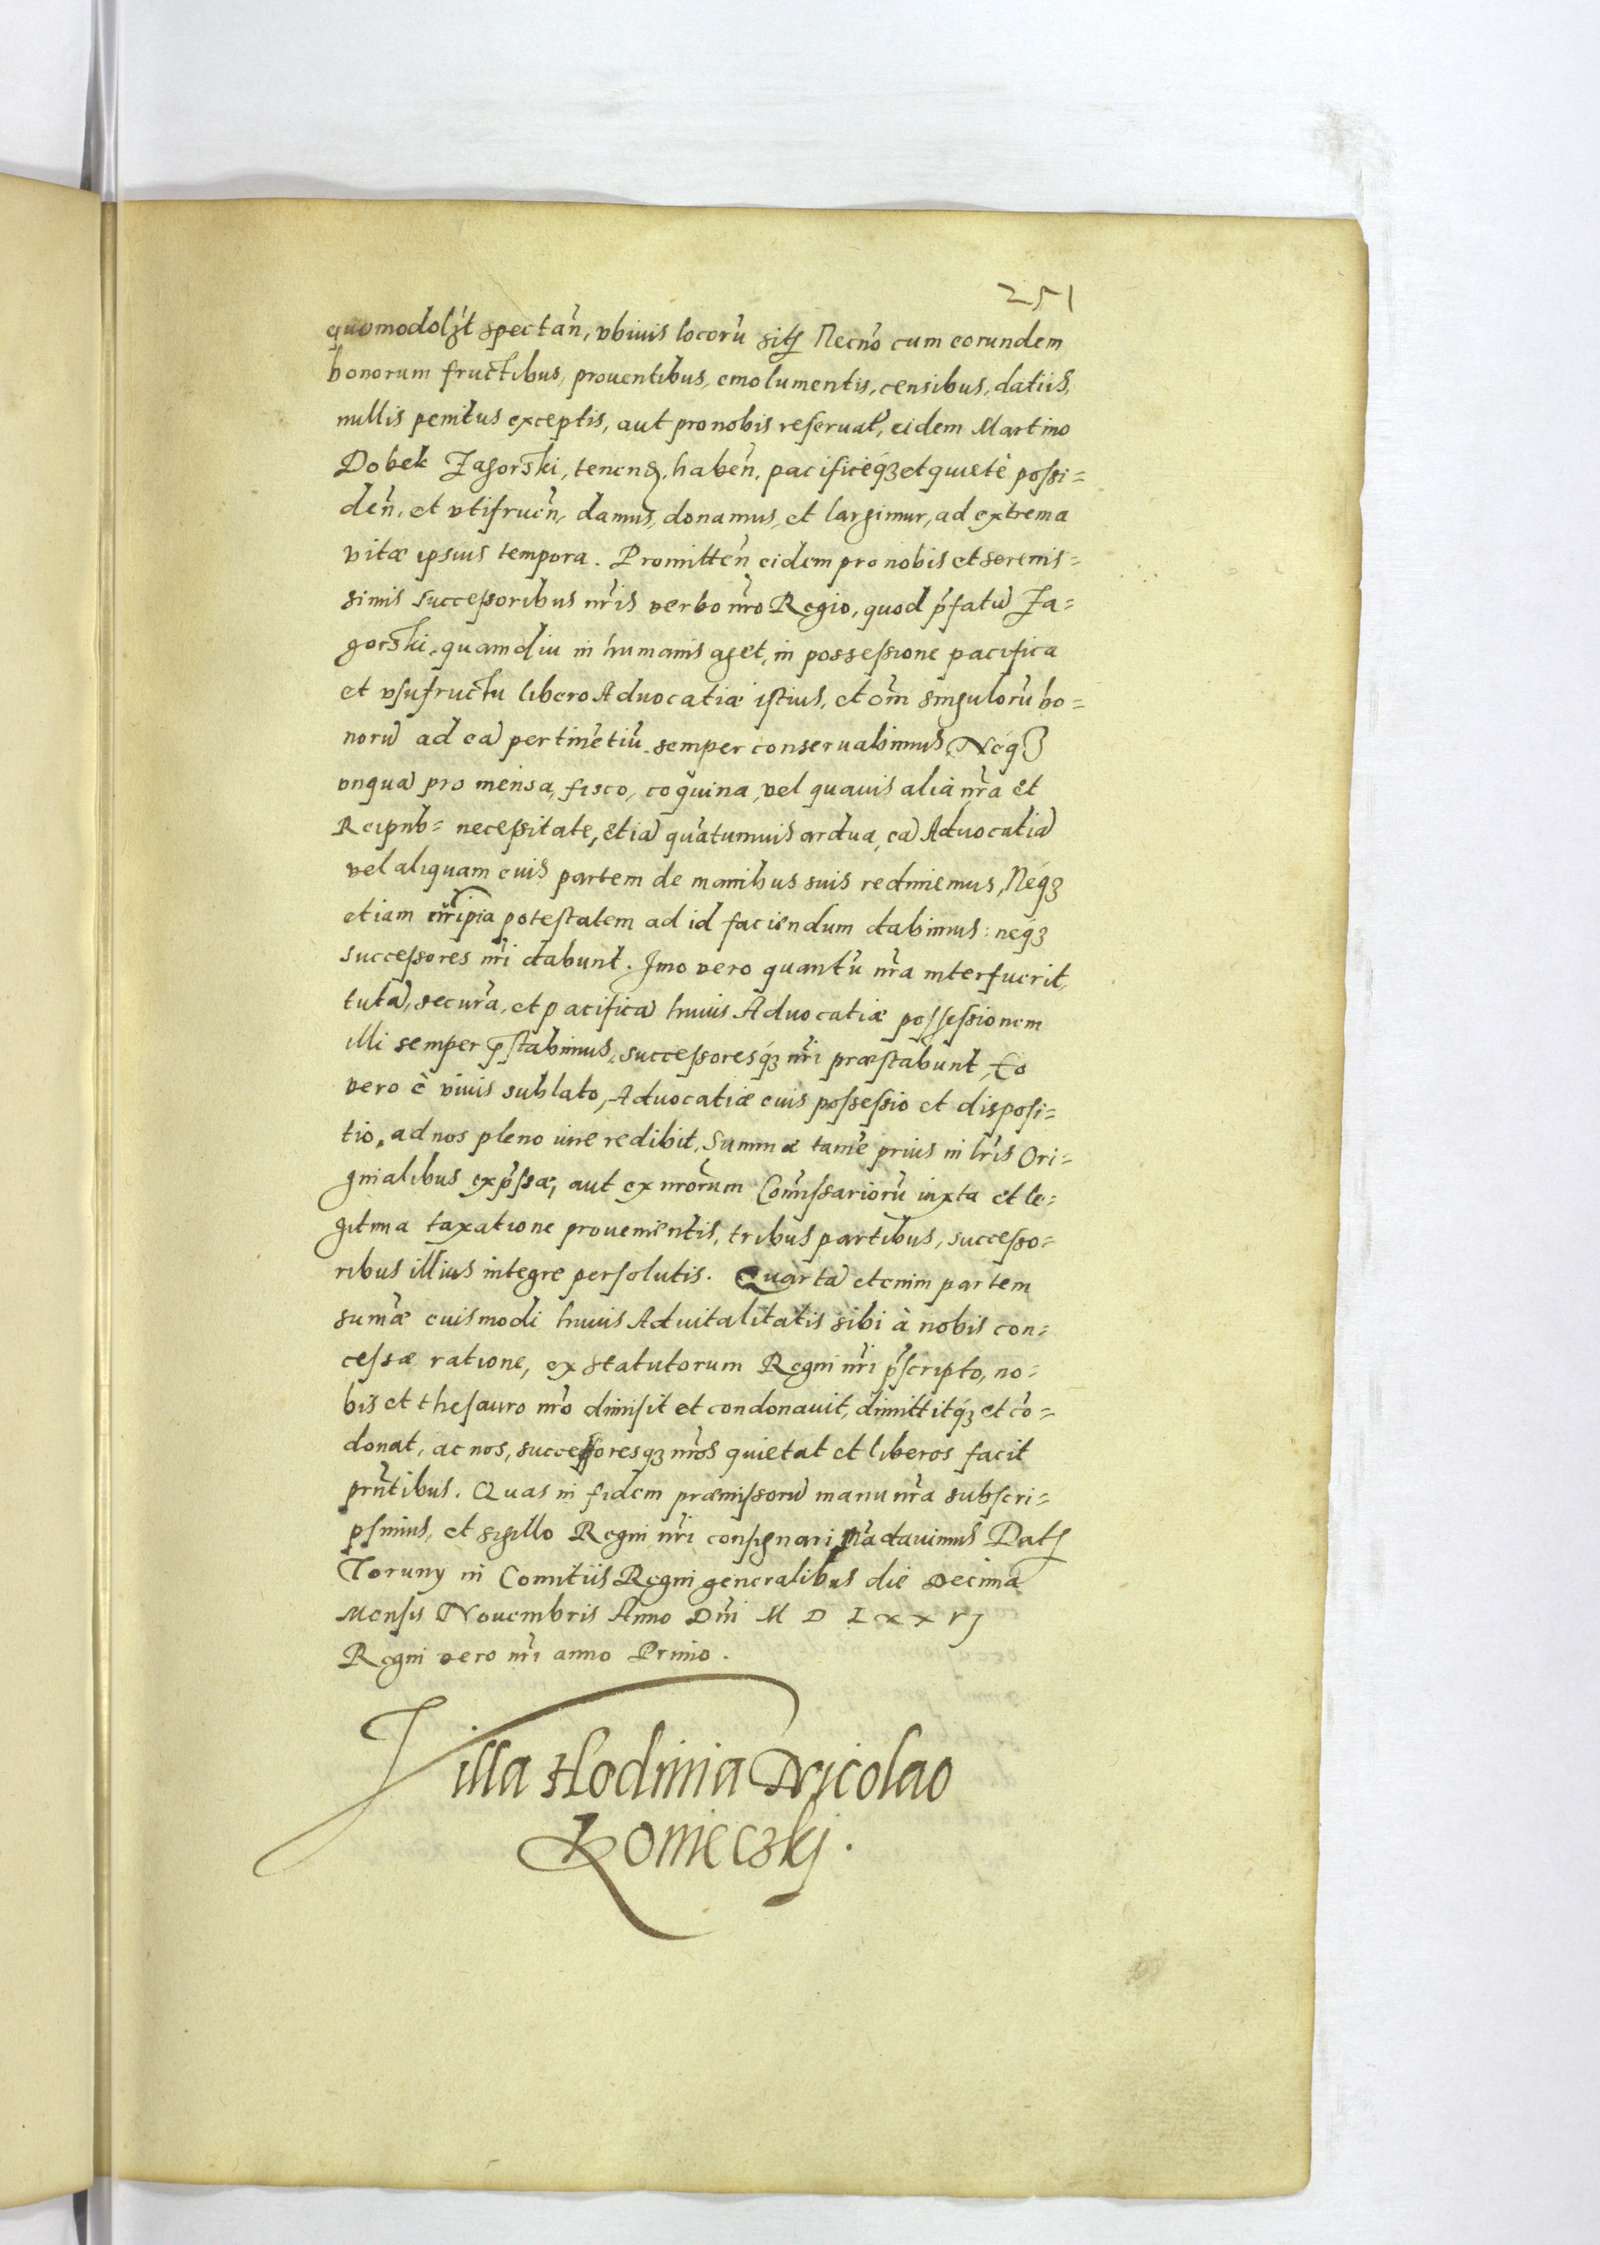 251
quomodolʒt spectan̄, vbiuis locorū sitꝭ Necnō cum eorundem
bonorum fructibus, prouentibus, emolumentis, censibus, datiis,
nullis penitus exceptis, aut pro nobis reseruat̄, eidem Martino
Dobek Zagorski, tenenꝭ, haben̄, pacificéqꝫ et quietè possi=
den̄, et vtifruen̄, damus, donamus, et largimur, ad extrema
vitæ ipsius tempora. Promitten̄ eidem pro nobis et serenis=
simis successoribus nr̄is verbo nr̄o Regio, quod p̄fatū Za=
gorski, quamdiu in humanis aget, in possessione pacifica
et vsufructu libero Aduocatiæ istius, et om̄ singulorū bo=
norū ad eā pertinētiū semper conseruabimus, Neqꝫ
vnquā pro mensa, fisco, coquina, vel quauis alia nr̄a et
Reipub= necessitate, etiā quātumuis ardua, eā Aduocatiā
vel aliquam euis partem de manibus suis redimemus, Neqꝫ
etiam potestatem ad id faciendum dabimus: neqꝫ
successores nr̄i dabunt. Imo vero quantū nr̄a interfuerit,
tutā, securā, et pacificā huius Aduocatiæ possessionem
illi semper p̄stabimus, successoresqꝫ nr̄i præstabunt, Eo
vero è viuis sublato, Aduocatiæ euis possessio et disposi=
tio, ad nos pleno iure redibit, Summæ tamē prius in lr̄is Ori=
ginalibus exp̄ssæ, aut ex nr̄orum Com̄issariorū iuxta et le=
gitima taxatione prouenientis, tribus partibus, successo=
ribus illius integre persolutis. Quartā etenim partem
sum̄æ euismodi huius Aduitalitatis sibi à nobis con=
cessæ ratione, ex statutorum Regni nr̄i p̄scripto, no=
bis et thesauro nr̄o dimisit et condonauit, dimittitqꝫ et cō=
donat, ac nos, successoresqꝫ nr̄os quietat et liberos facit
prn̄tibus. Quas in fidem præmissorū manu nr̄a subscri=
psimus, et sigillo Regni nr̄i consignari mādauimus Datꝭ
Toruny in Comitiis Regni generalibus die Decima
Mensis Nouembris Anno Dn̄i M D L x x vj
Regni vero nr̄i anno Primo.
Villa Hodinia Nicolao
Konieczkj.